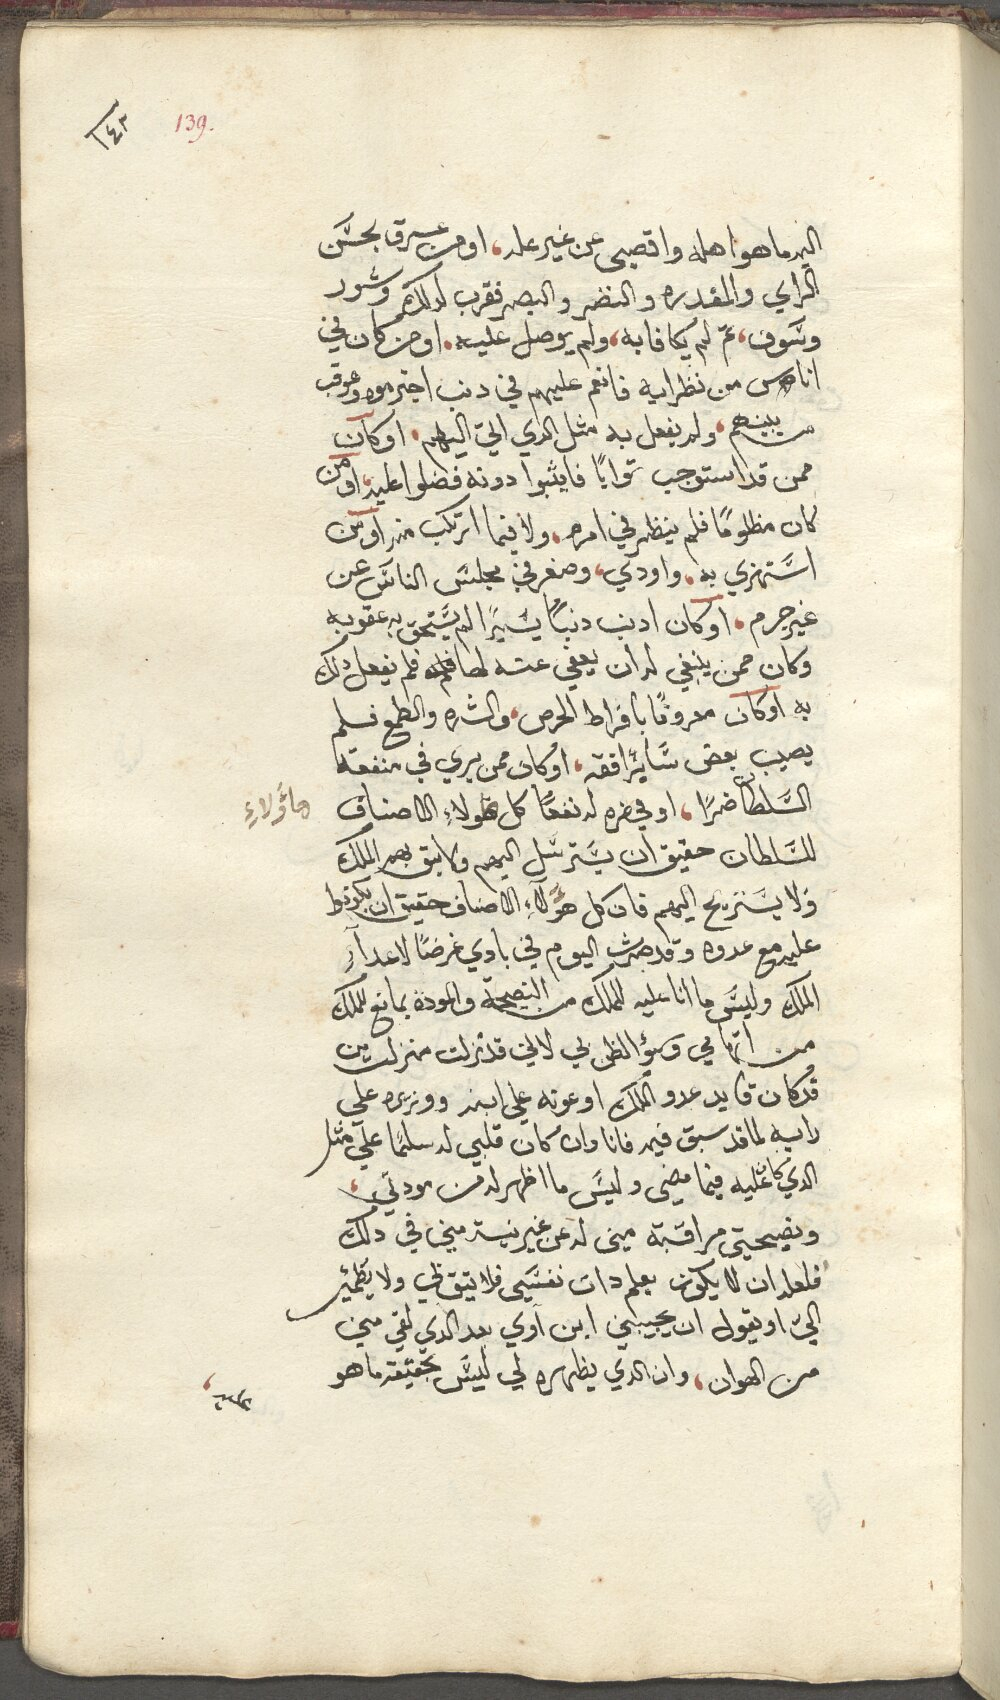 ١٤٣
139.
اليه ما هو اهله واقصي عن غير عله، او من عرق بحسن
الراي والمقدره والنضر والبصر فقرب لدلك وشور
وسوف، تم لم يكافا به، ولم يوصل عليه. او من كان في
اناس من نظرايه فانعم عليهم في دنب اجترموه وعوقب
من بينهم، ولم يفعل به مثل الدي اليّ اليهم، او كان
ممن قد استوجب توابًا فايثبوا دونه فضلوا عليه، او من
كان مظلومًا فلم ينظر في امره، ولا فيما ارتكب منه او من
استهزي به، واودي، وصغر في مجلس الناس عن
غير جرم، او كان ادنب دنبًا يسيرًا لم يستحق به عقوبه
وكان ممن ينبغي له ان يعفي عنه لصا فلم يفعل دلك
به او كان معروفًا بافراط الحرص، والشره والطمع فلم
يصيب بعض سايرافقه، او كان ممن يري في منفعة
السلطان ضرًا، او في ضره له نفعًا كل هولاء الاصناف
هاؤلاءِ
للسلطان حقيق ان يسترسل اليهم ولا يتق بهم الملك
ولا يستريح اليهم فان كل هؤلآء الاصناف حقيق ان يكونوا
عليه مع عدوه وقد صرت اليوم في بادي غرضًا لاعدآء
الملك وليس ما انا عليه للملك من النصيحة والمودة بمانع للملك
من اتهامي وسؤ الظن بي لاني قد نزلت منزلت من
قد كان قايد عدو الملك او عونه علي ابنه ووزيره علي
رايه لما قد سبق فيه فانا وان كان قلبي له سلمًا علي مثل
الدي كا عليه فيما مضي وليس ما اظهر له من مودتي،
ونصيحتي مراقبة مني له عن غير نية مني في دلك
فلعله ان لا يكون يعلم دات نفسي فلا يتق بي ولا يطمئن
اليّ او يقول ان يجيبني ابن آوي بعد الدي لقي مني
من الهوان، وان الدي يظهره لي ليس بحقيقه ما هو